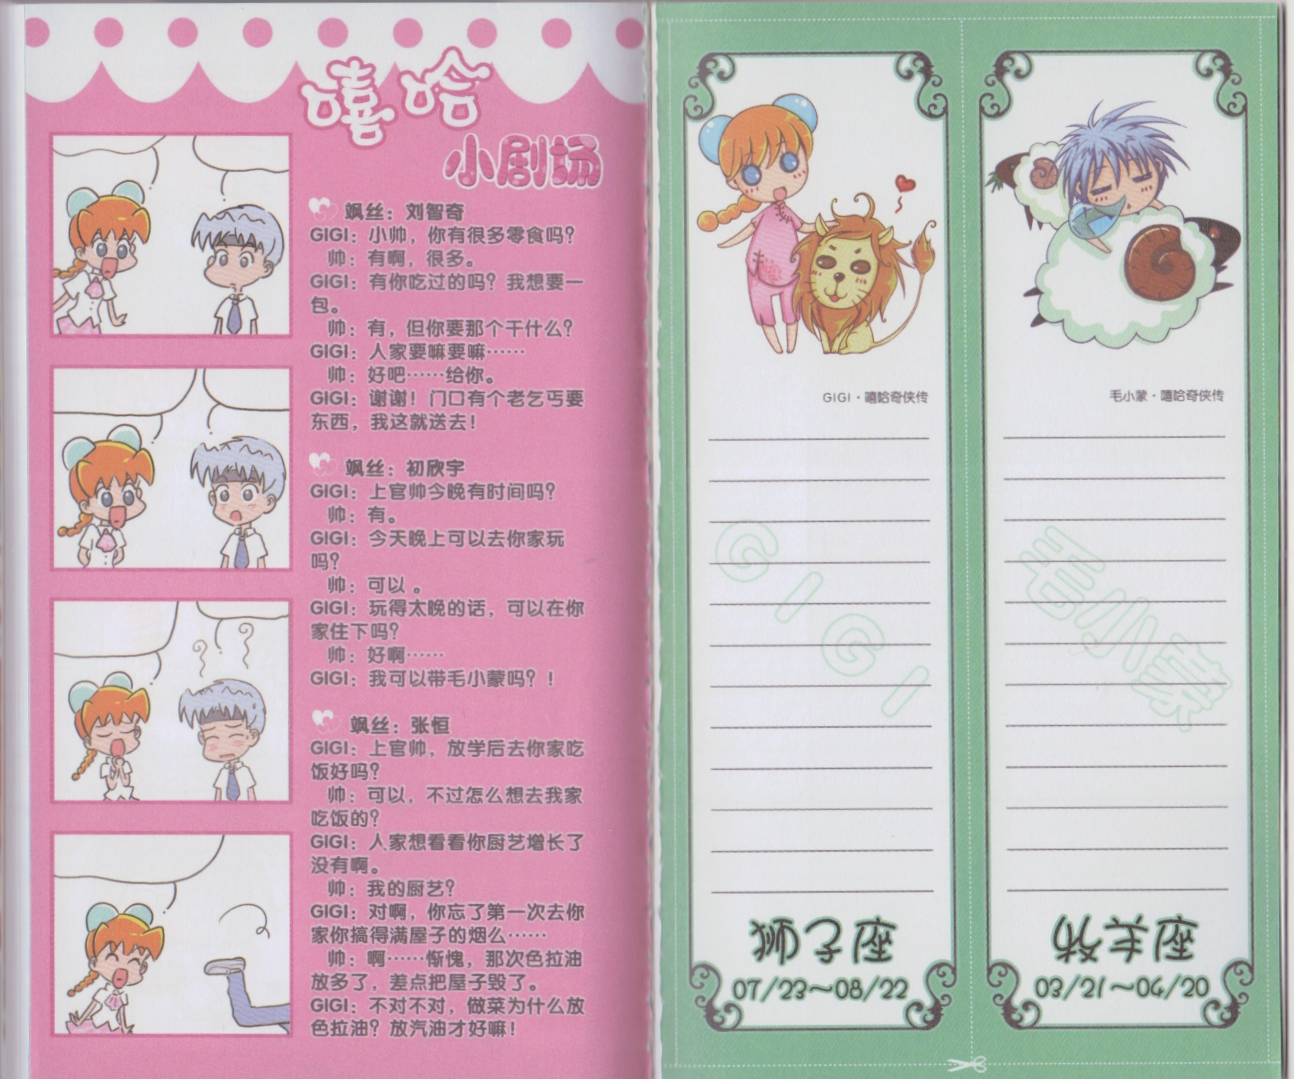 嘻哈
小剧场
飒丝：刘智奇
GIGI：小帅，你有很多零食吗？
帅：有啊，很多。
GIGI：有你吃过的吗？我想要一
包。
帅：有，但你要那个干什么？
GIGI：人家要嘛要嘛……
帅：好吧……给你。
GIGI：谢谢！门口有个老乞丐要
东西，我这就送去！
飒丝：初欣宇
GIGI：上官帅今晚有时间吗？
帅：有。
GIGI：今天晚上可以去你家玩
吗？
帅：可以 。
GIGI：玩得太晚的话，可以在你
家住下吗？
帅：好啊……
GIGI：我可以带毛小蒙吗？！
飒丝：张恒
GIGI：上官帅，放学后去你家吃
饭好吗？
帅：可以，不过怎么想去我家
吃饭的？
GIGI：人家想看看你厨艺增长了
没有啊。
帅：我的厨艺？
GIGI：对啊，你忘了第一次去你
家你搞得满屋子的烟么……
帅：啊……惭愧，那次色拉油
放多了，差点把屋子毁了。
GIGI：不对不对，做菜为什么放
色拉油？放汽油才好嘛！
GIGI·嘻哈奇侠传
GIGI
狮子座
07/23～08/22
毛小蒙·嘻哈奇侠传
毛小蒙
牧羊座
03/21～04/20